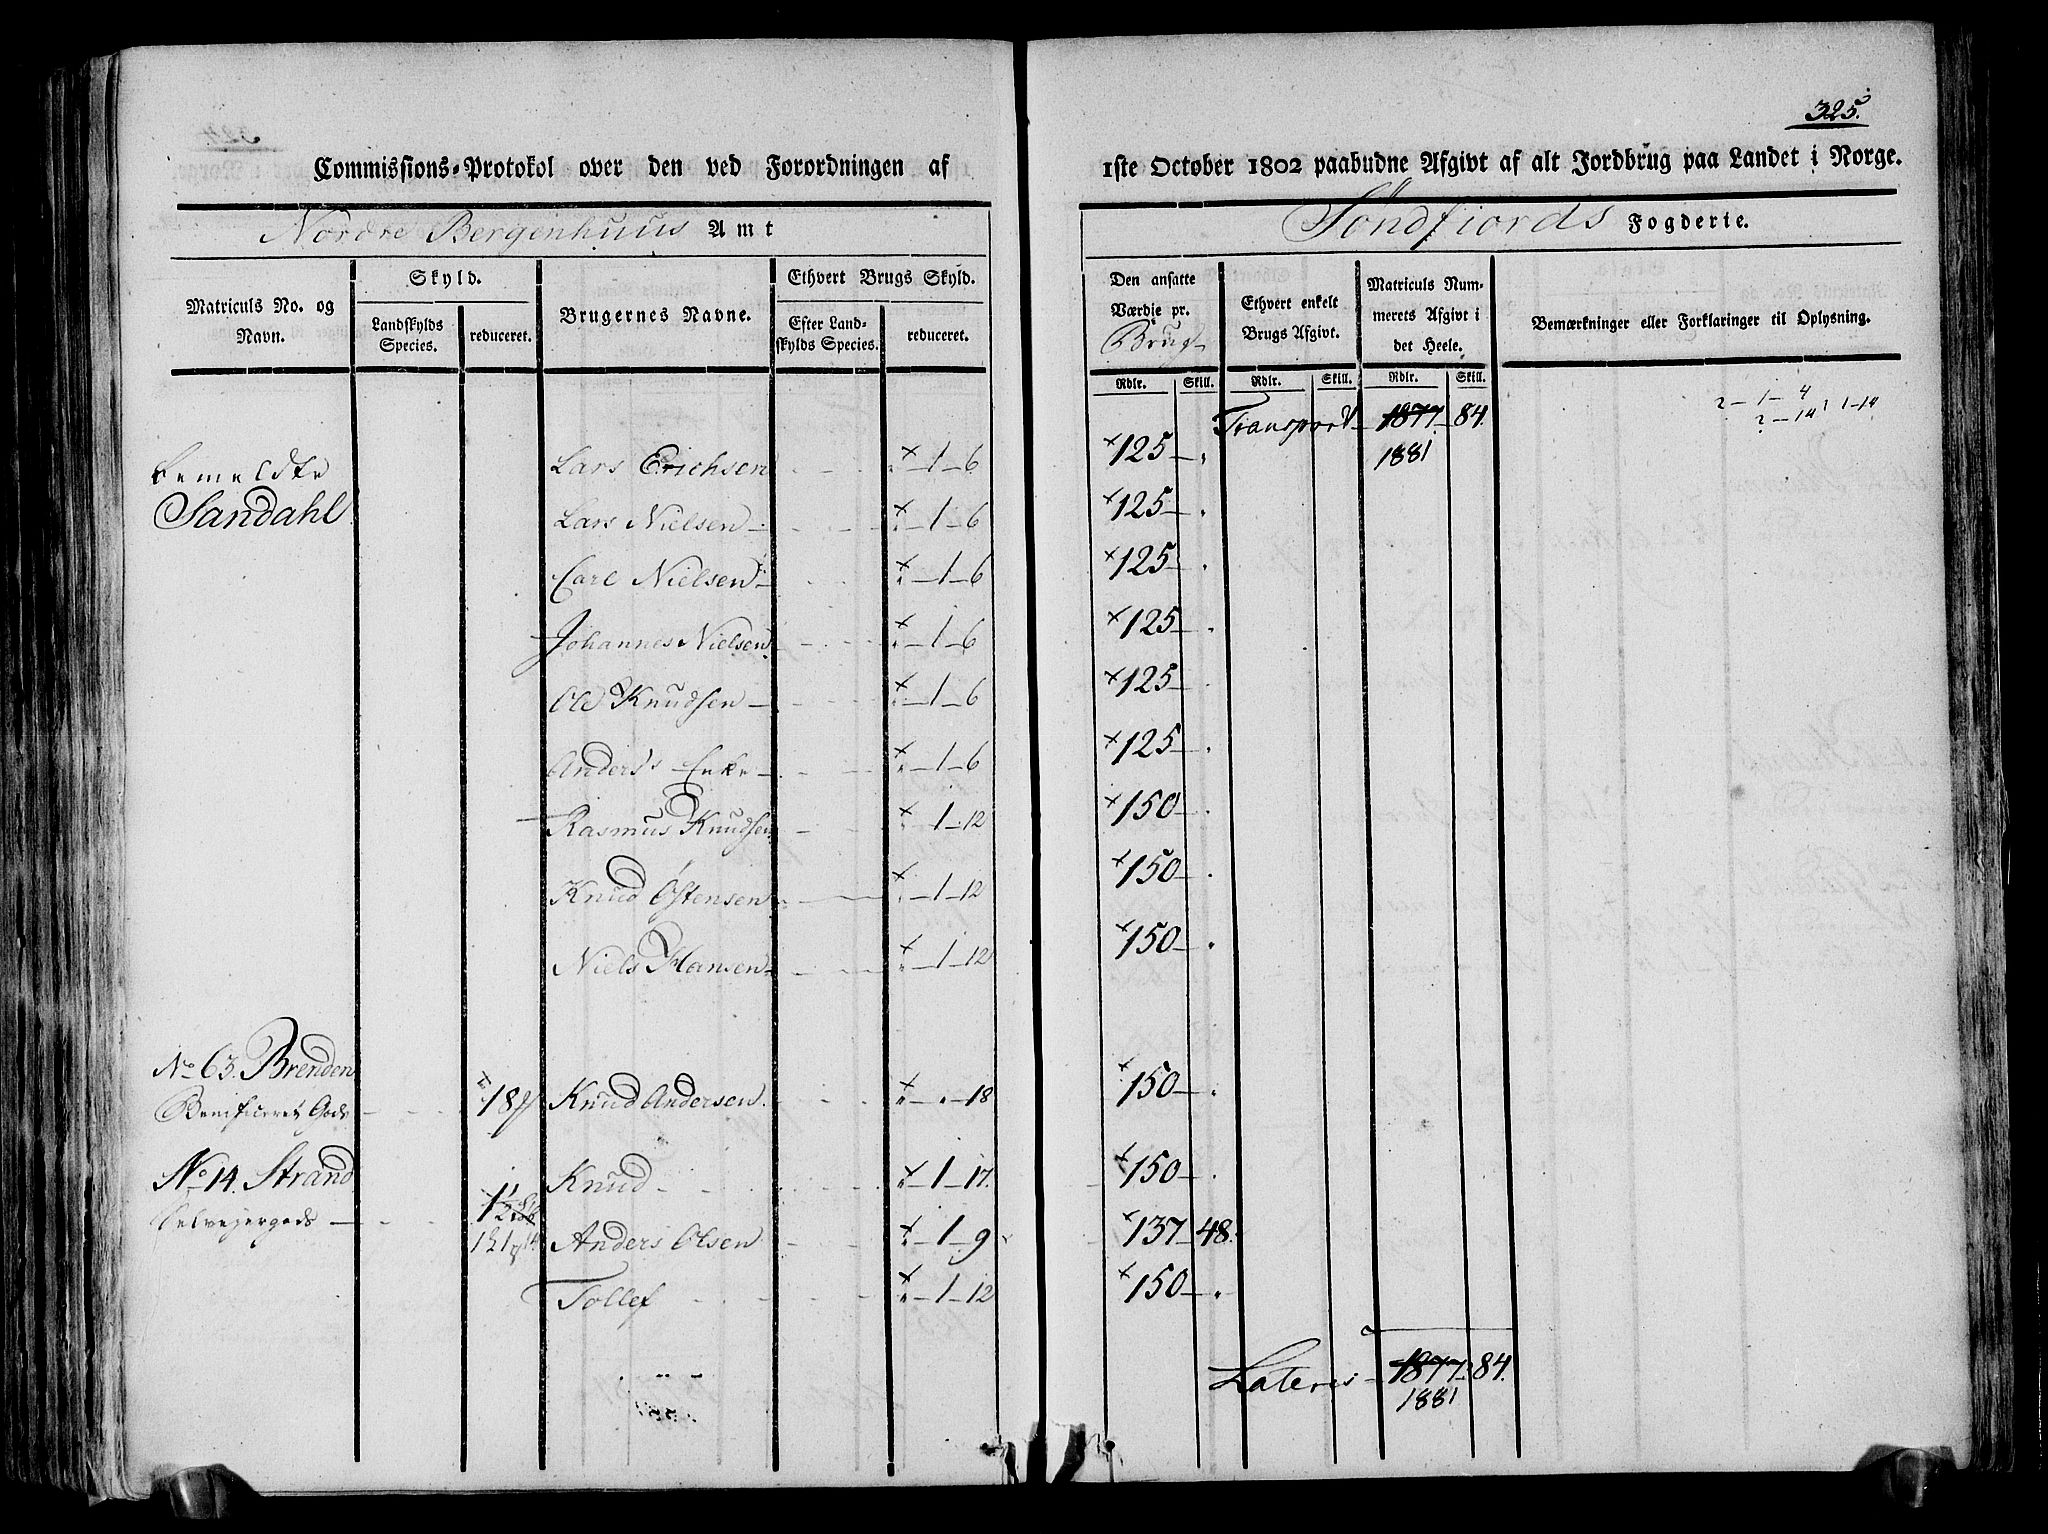 325.
Commissions-Protokol over den ved Forordningen af 1ste October 1802 paabudne Afgivt af alt Jordbrug paa Landet i Norge.
Nordre Bergenhuus Amt Söndfiords Fogderie.
Matriculs No. og Navn.
Skyld.
Landskylds Species.
reduceret.
Brugernes Navne.
Ethvert Brugs Skyld.
Efter Landskylds Species.
reduceret.
Den ansatte Værdie pr. Brug
Ethvert enkelt Brugs Afgivt.
Matriculs Nummerets Afgivt i det Heele.
Bemærkninger eller Forklaringer til Oplysning.
Rdlr. Skill. Rdlr. Skill. Rdlr. Skill.
Transport 1877 84.
1881
2-1-4
2-14 1-14
bemeldte Lars Erichsen × 1-6 × 125
Sandahl Lars Nielsen × 1-6 × 125
Carl Nielsen × 1-6 × 125
Johannes Nielsen × 1-6 × 125
Ole Knudsen × 1-6 × 125
Anders's Enke × 1-6 × 125
Rasmus Knudsen × 1-12 × 150
Knud Östensen × 1-12 × 150
Niels Hansen × 1-12 × 150
No 63. Brenden
Benificeret Gods × 18 Knud Andersen × 18 × 150
No 14. Strand Knud × 1-17. × 150
Selvejergods Anders Olsen × 1-9 × 137 48.
Tollef × 1-12 × 150
Lateris 1877 84.
1881